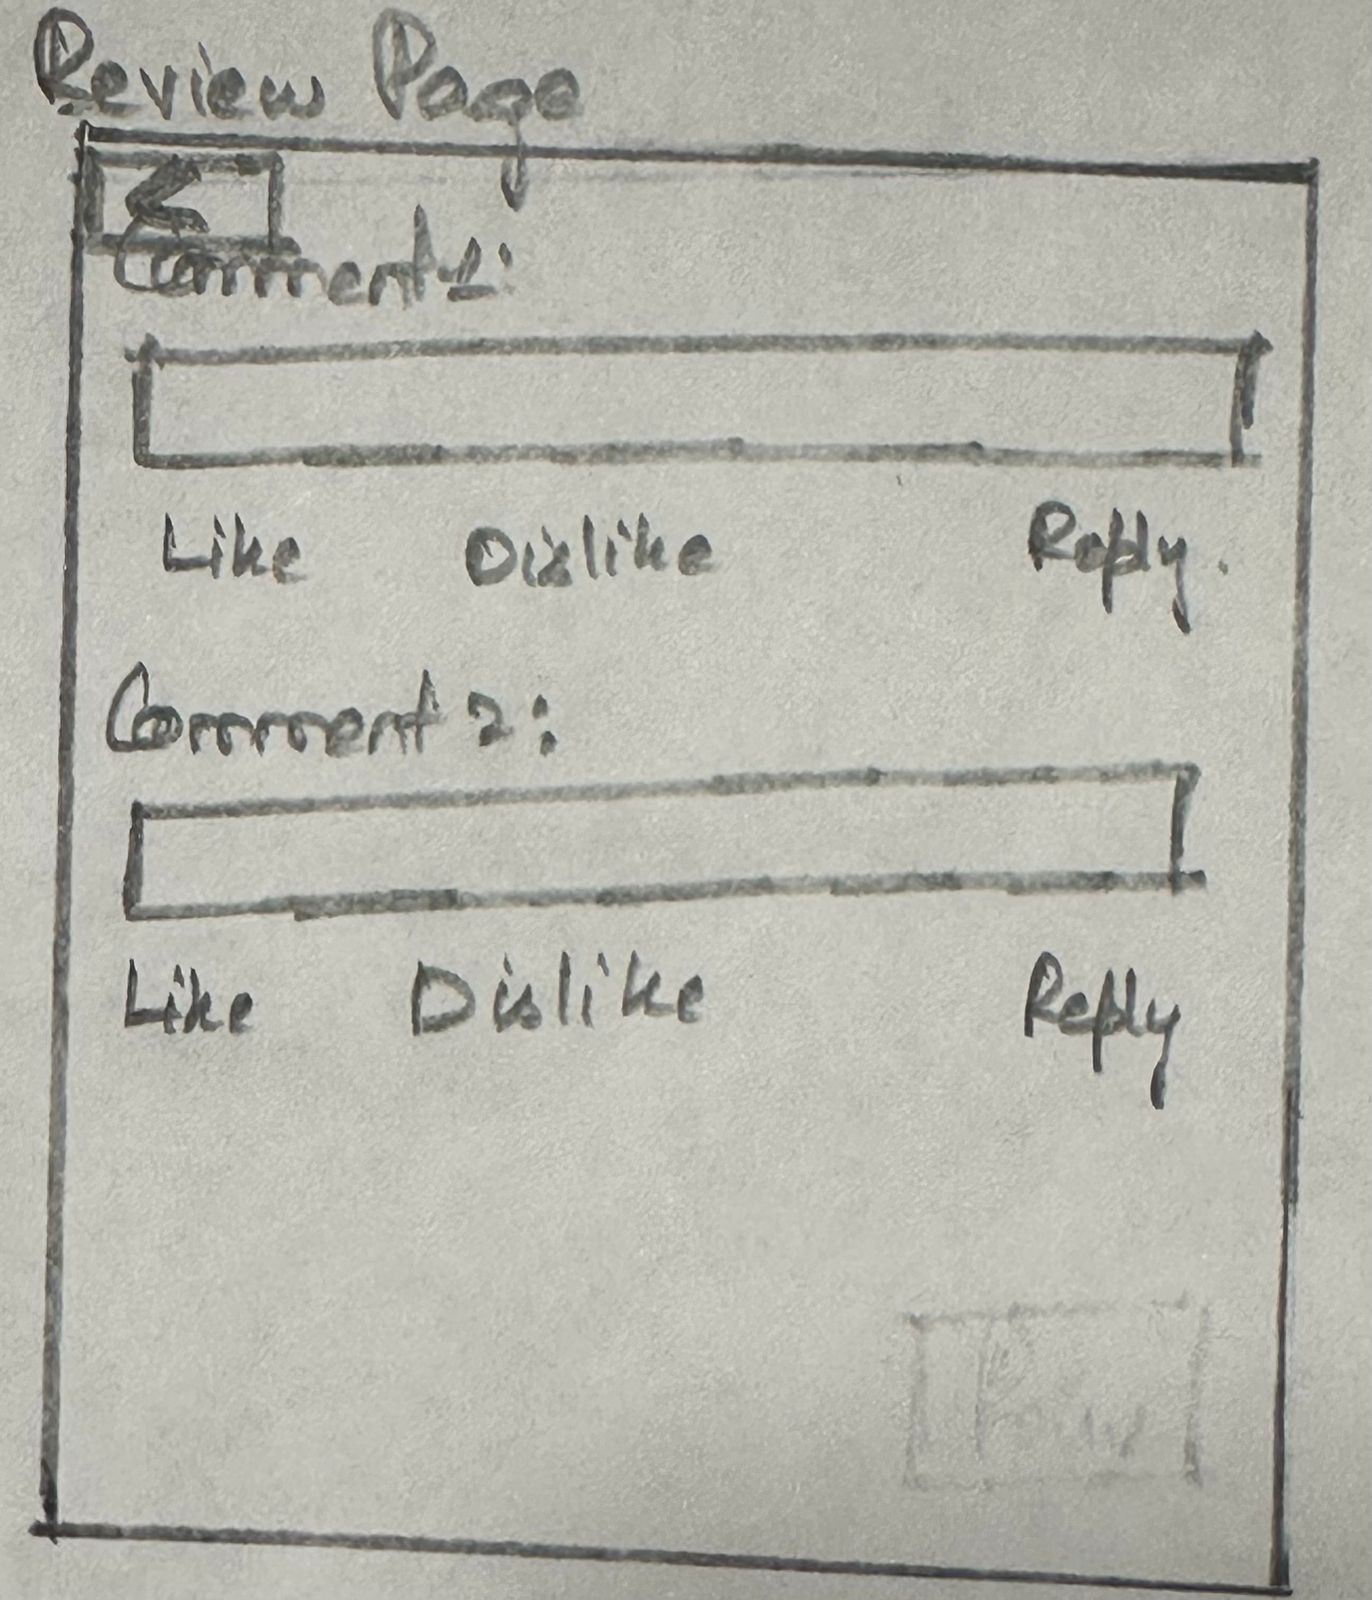 Review Page
<
Comment 1:
Like Dislike Reply.
Comment 2:
Like Dislike Reply